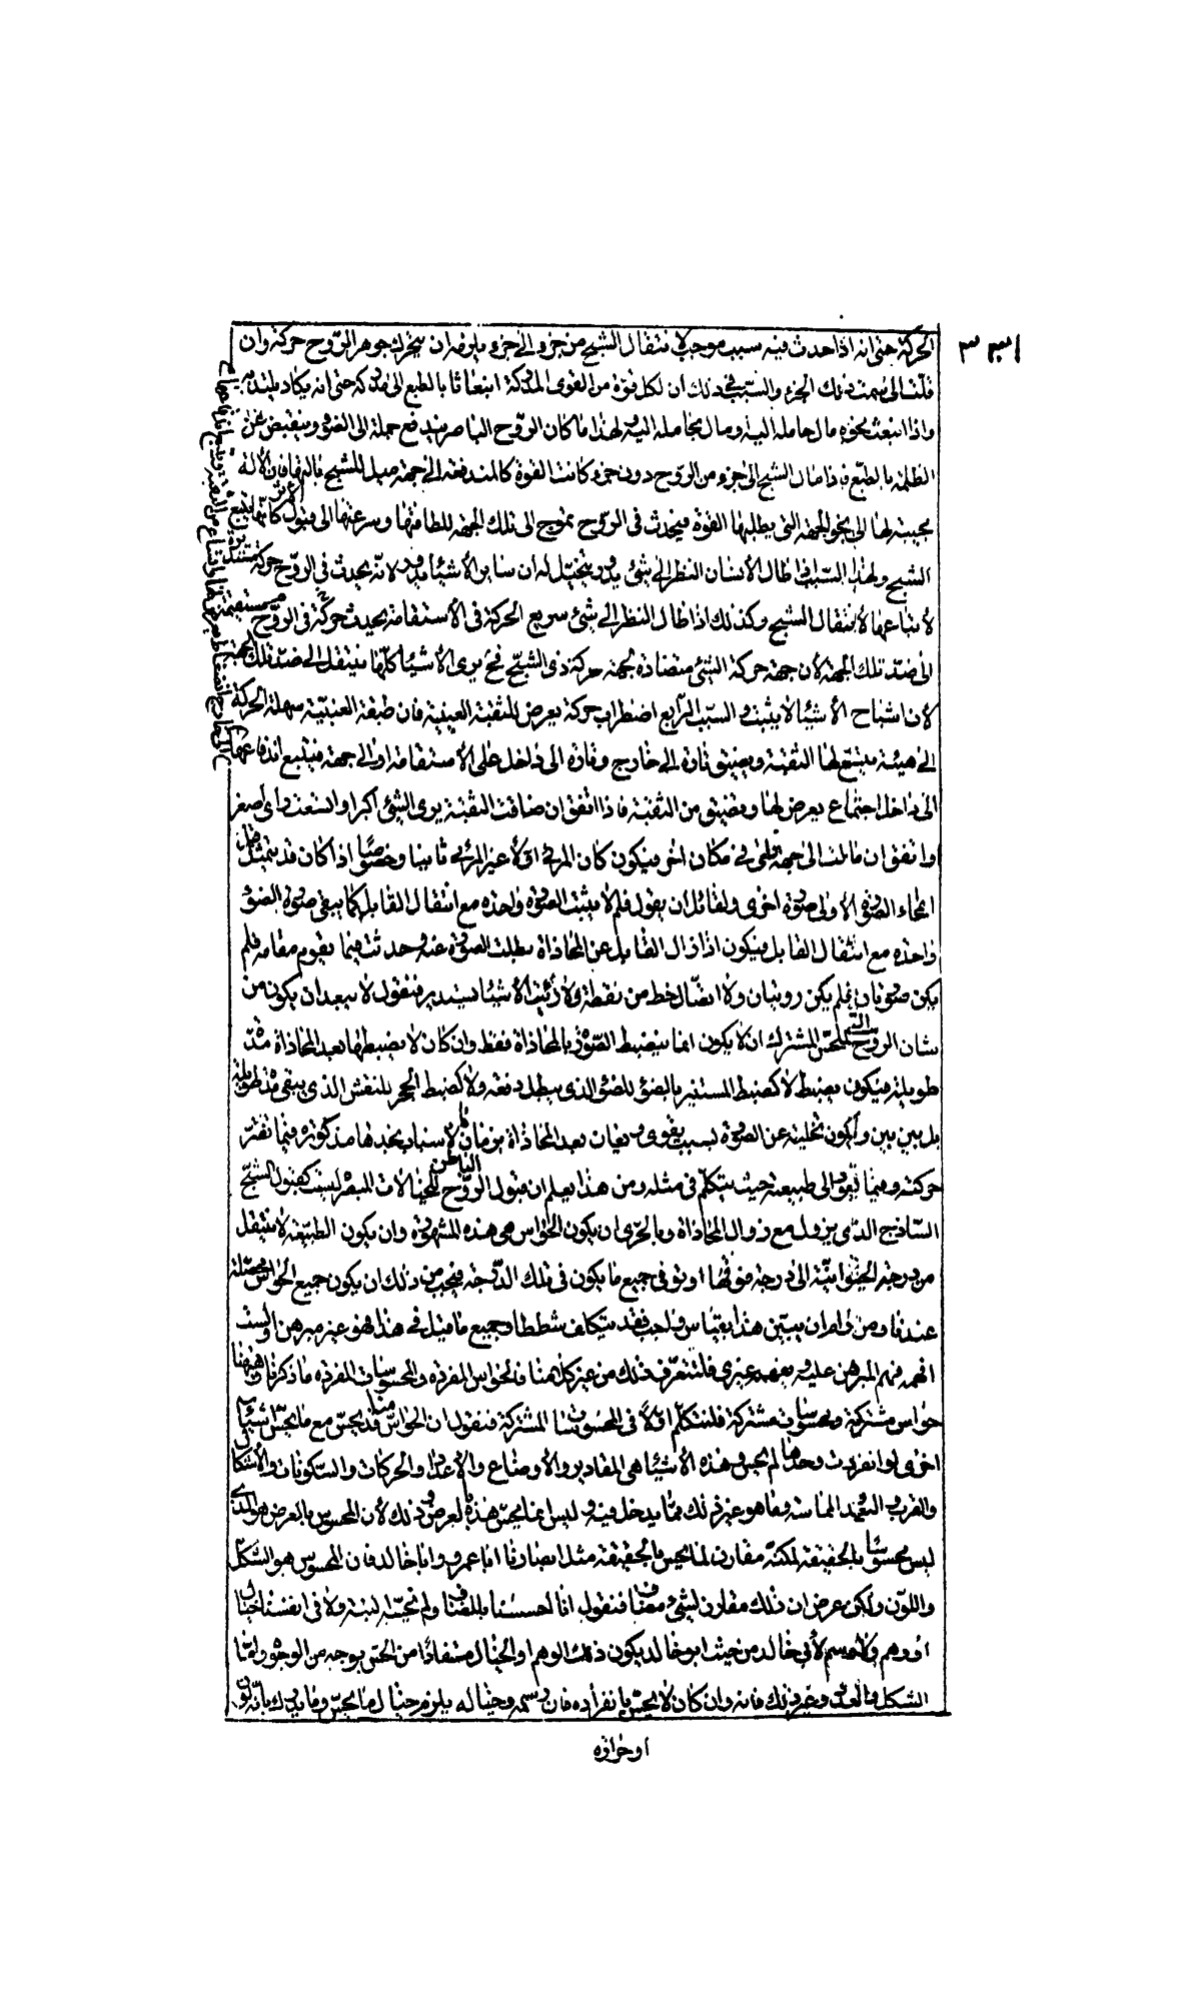 الحركة حتى انه اذا حدث فيه سبب موجب لانتقال الشبح من جزء الى جزء يلزمه ان يتحرك جوهر الروح حركة وان
قلت الى سمت ذلك الجزء والسبب فى ذلك ان لكل قوة من القوى المدركة انبعاثا بالطبع الى مدركه حتى انه يكاد يلتذ به
واذا انبعث نحوه مال حامله اليه ومال بحامله اليه ولهذا ما كان الروح الباصر يندفع جملة الى الضوء وينقبض عن
الظلمة بالطبع فاذا مال الشبح الى جزء من الروح دون جزء كانت القوة كالمندفعة الى جهة ميل الشبح بالتها فان الالة
مجيبة لها الى نحو الجهة التى يطلبها القوة فيحدث فى الروح تموج الى تلك الجهة للطافتها وسرعتها الى قبول الاثر كانها تتبع
الشبح ولهذا السبب اذا طال الانسان النظر الى شئ يدور يتخيل له ان ساير الاشياء يدور لانه يحدث فى الروح حركة مستديرة
لاتباعها لانتقال الشبح وكذلك اذا طال النظر الى شئ سريع الحركة فى الاستقامة يحدث حركة فى الروح مستقيمة
الى ضد تلك الجهة لان جهة حركة الشئ متضادة لجهة حركة ذى الشبح فح يرى الاشياء كلها ينتقل الى ضد تلك الجهة
لان اشباح الاشياء لا يثبت والسبب الرابع اضطراب حركة يعرض للثقبة العينية فان طبقة العنبية سهلة الحركة
الى هيئة يتسع لها الثقبة ويضيق تارة الى خارج وتارة الى داخل على الاستقامة او الى جهة فيتبع اندفاعها
الى داخل اجتماع يعرض لها ويضيق من الثقبة فاذا اتفق ان ضاقت الثقبة يرى الشئ اكبر او اتسعت راى اصغر
او اتفق ان مالت الى جهة رئى فى مكان اخر فيكون كان المرئى اولا غير المرئى ثانيا وخصوصا اذا كان قد يتمثل قبل
امحاء الصورة الاولى صورة اخرى ولقائل ان يقول فلم لا يثبت الصورة واحدة مع انتقال القابل كما يبقى صورة الضوء
واحدة مع انتقال القابل فيكون اذا زال القابل عن المحاذاة بطلت الصورة عنه وحدثت فيما يقوم مقامه فلم
يكن صورتان فلم يكن رويتان ولا اتصال خط من نقطة ولا رئيت الاشياء يستدير فنقول لا يبعد ان يكون من
شان الروح التى للحس المشترك ان لا يكون انما يضبط الصورة بالمحاذاة فقط وان كان لا يضبطها بعد المحاذاة مدة
طويلة فيكون يضبط لا كضبط المستنير بالضوء للضوء الذى يبطل دفعة ولا كضبط الحجر للنقش الذى يبقى مدة طويلة
بل بين بين ويكون تخليته عن الصورة بسبب يقوى ويعان بعد المحاذاة بزمان ما لاسباب نجدها مذكورة فيما نفتر
حركته وفيما يعود الى طبيعته حيث يتكلم فى مثله ومن هذا يعلم ان قبول الروح الباطن للخيالات المبصرة ليست كقبول الشبح
الساذج الذى يزول مع زوال المحاذاة وبالحرى ان يكون الحواس هى هذه المشهورة وان يكون الطبيعة لا ينتقل
من درجة الحيوانية الى درجة فوقها او توفى جميع ما يكون فى تلك الدرجة فيجب من ذلك ان يكون جميع الحواس محصلة
عندنا ومن رام ان يبين هذا بقياس واجب فقد يتكلف شططا وجميع ما قيل فى هذا فهو غير مبرهن او لست
افهمه فهم المبرهن عليه ويفهمه غيرى فلنتعرف ذلك من غير كلامنا فالحواس المفردة والمحسوسات المفردة ما ذكرنا وههنا
حواس مشتركة ومحسوسات مشتركة فلنتكلم اولا فى المحسوسات المشتركة فنقول ان الحواس منا قد يحس مع ما يحس اشياء
اخرى لو انفردت وحدها لم يحس وهذه الاشياء هى المقادير والاوضاع والاعداد والحركات والسكونات والاشكال
والقرب والبعد والمماسة وما هو غير ذلك مما يدخل فيه وليس انما يحس هذه بالعرض وذلك لان المحسوس بالعرض هو الذى
ليس محسوسا بالحقيقة لكنه مقارن لما يحس بالحقيقة مثل ابصارنا ابا عمرو وابا خالد فان المحسوس هو الشكل
واللون ولكن عرض ان ذلك مقارن لشئ مضاف فنقول انا احسسنا بالمضاف ولم نحسه البتة ولا فى انفسنا خيال
او وهم ولا رسم لابى خالد من حيث ابو خالد يكون ذلك الوهم او الخيال مستفادا من الحس بوجه من الوجوه واما
الشكل والعدد وغير ذلك فانه وان كان لا يحس بانفراده فان رسمه وخياله يلزم خيال ما يحس وما يدرك بانه لون
او حرارة